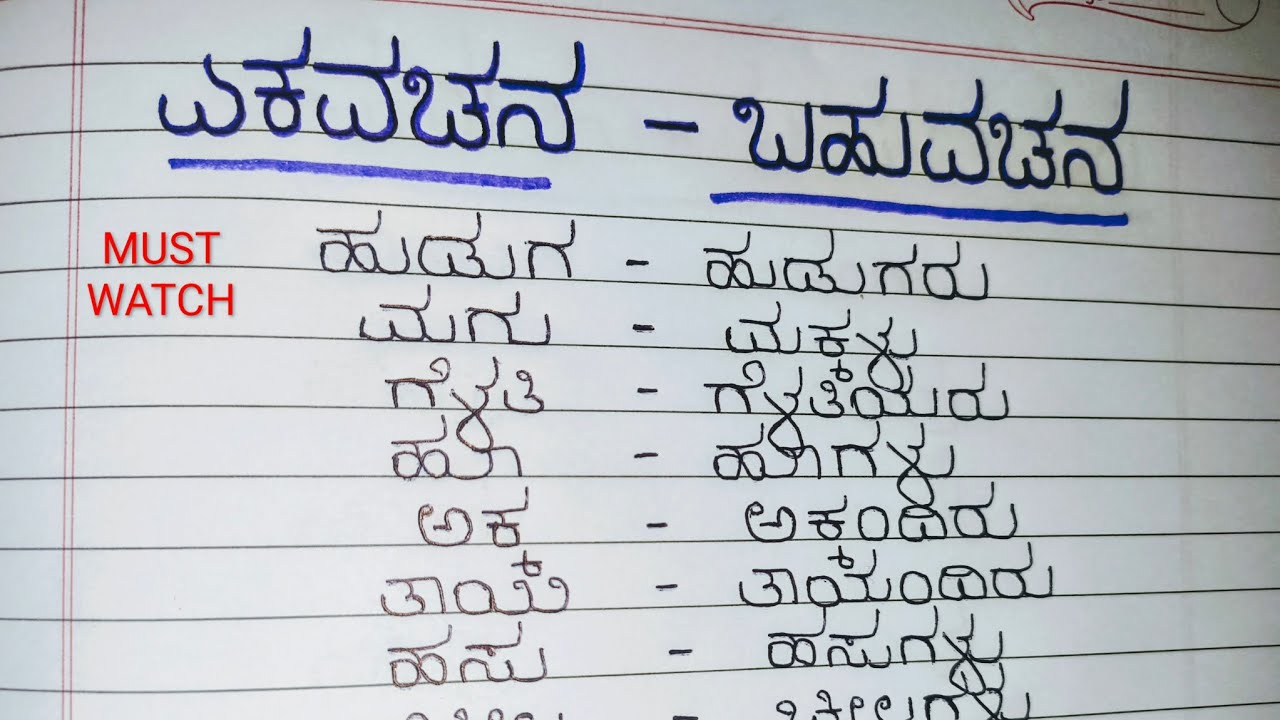 ಏಕವಚನ - ಬಹುವಚನ
MUST
WATCH
ಹುಡುಗ - ಹುಡುಗರು
ಮಗು - ಮಕ್ಕಳು
ಗೆಳತಿ - ಗೆಳತಿಯರು
ಹೂ - ಹೂಗಳು
ಅಕ್ಕ - ಅಕ್ಕಂದಿರು
ತಾಯಿ - ತಾಯಂದಿರು
ಹಸು - ಹಸುಗಳು